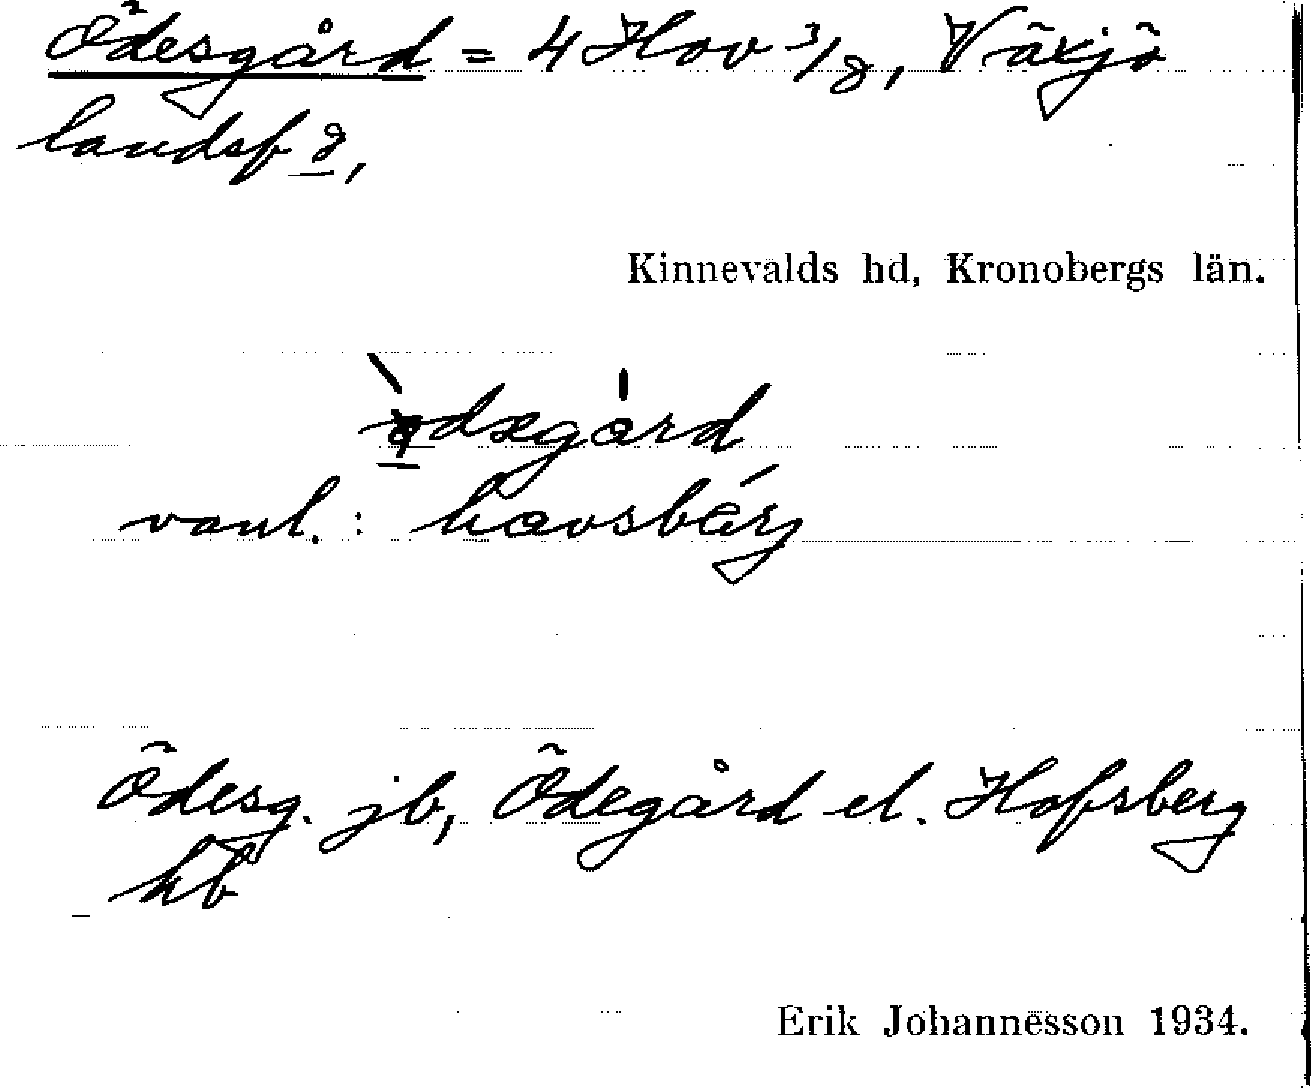 Ödesgård = 4 Hov 3/8, Växjö
landsf 8,
Kinnevalds hd, Kronobergs län.
vanl. : havsbærj
Ödesg. jb, Ödegård el. Hofsberg
hb
Erik Johannesson 1934.